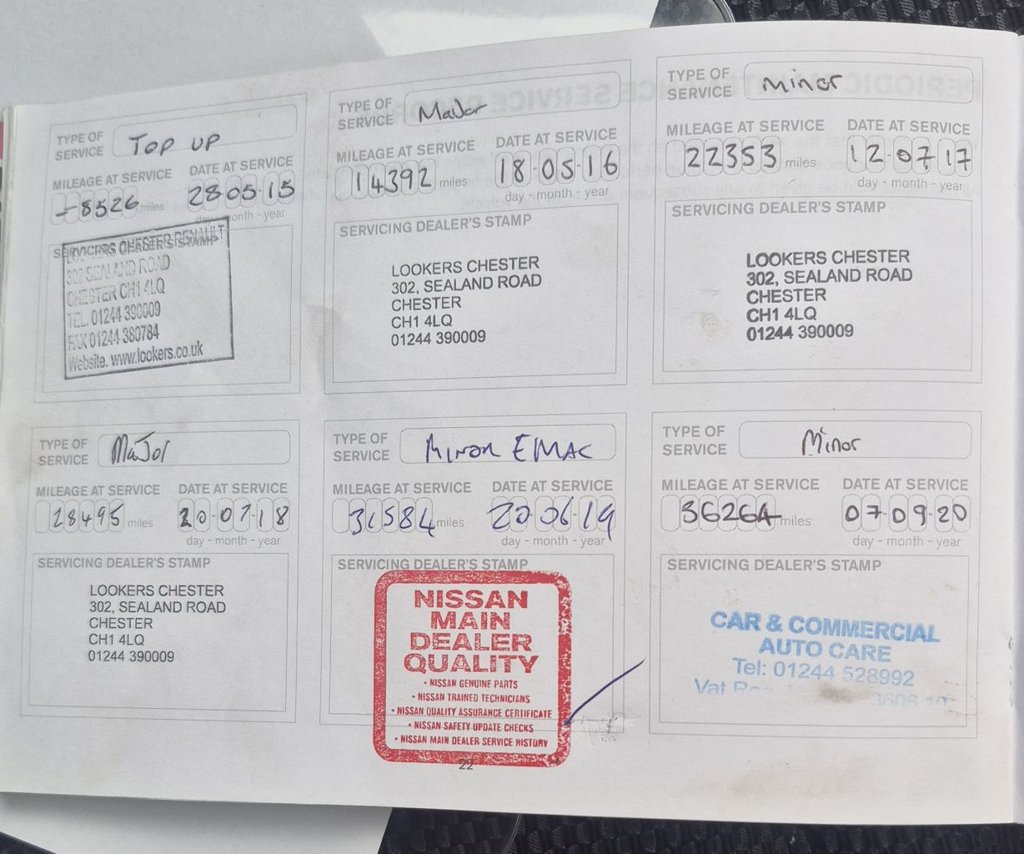 TYPE OF SERVICE TOP UP
MILEAGE AT SERVICE DATE AT SERVICE
-8526 miles 28-05-15
day - month - year
SERVICING DEALER'S STAMP
LOOKERS CHESTER RENAULT
302 SEALAND ROAD
CHESTER CH1 4LQ
TEL. 01244 390009
FAX 01244 380784
Website. www.lookers.co.uk
TYPE OF SERVICE Major
MILEAGE AT SERVICE DATE AT SERVICE
14392 miles 18-05-16
day - month - year
SERVICING DEALER'S STAMP
LOOKERS CHESTER
302, SEALAND ROAD
CHESTER
CH1 4LQ
01244 390009
TYPE OF SERVICE Minor
MILEAGE AT SERVICE DATE AT SERVICE
22353 miles 12-07-17
day - month - year
SERVICING DEALER'S STAMP
LOOKERS CHESTER
302, SEALAND ROAD
CHESTER
CH1 4LQ
01244 390009
TYPE OF SERVICE MaJor
MILEAGE AT SERVICE DATE AT SERVICE
28495 miles 20-07-18
day - month - year
SERVICING DEALER'S STAMP
LOOKERS CHESTER
302, SEALAND ROAD
CHESTER
CH1 4LQ
01244 390009
TYPE OF SERVICE MINOR EMAC
MILEAGE AT SERVICE DATE AT SERVICE
miles 20-06-19
day - month - year
SERVICING DEALER'S STAMP
NISSAN
MAIN
DEALER
QUALITY
• NISSAN GENUINE PARTS
• NISSAN TRAINED TECHNICIANS
• NISSAN QUALITY ASSURANCE CERTIFICATE
• NISSAN SAFETY UPDATE CHECKS
• NISSAN MAIN DEALER SERVICE HISTORY
TYPE OF SERVICE Minor
MILEAGE AT SERVICE DATE AT SERVICE
36264 miles 07-09-20
day - month - year
SERVICING DEALER'S STAMP
CAR & COMMERCIAL
AUTO CARE
Tel: 01244 528992
Vat
22